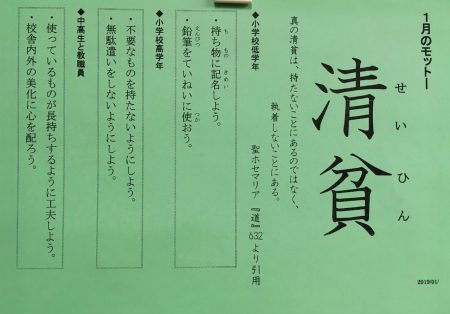 1月のモットー
清貧
せいひん
真の清貧は、持たないことにあるのではなく、
執着しないことにある。
聖ホセマリア『道』632より引用
◆小学校低学年
・持ち物に記名しよう。
・鉛筆をていねいに使おう。
◆小学校高学年
・不要なものを持たないようにしよう。
・無駄遣いをしないようにしよう。
◆中高生と教職員
・使っているものが長持ちするように工夫しよう。
・校舎内外の美化に心を配ろう。
2019/01/